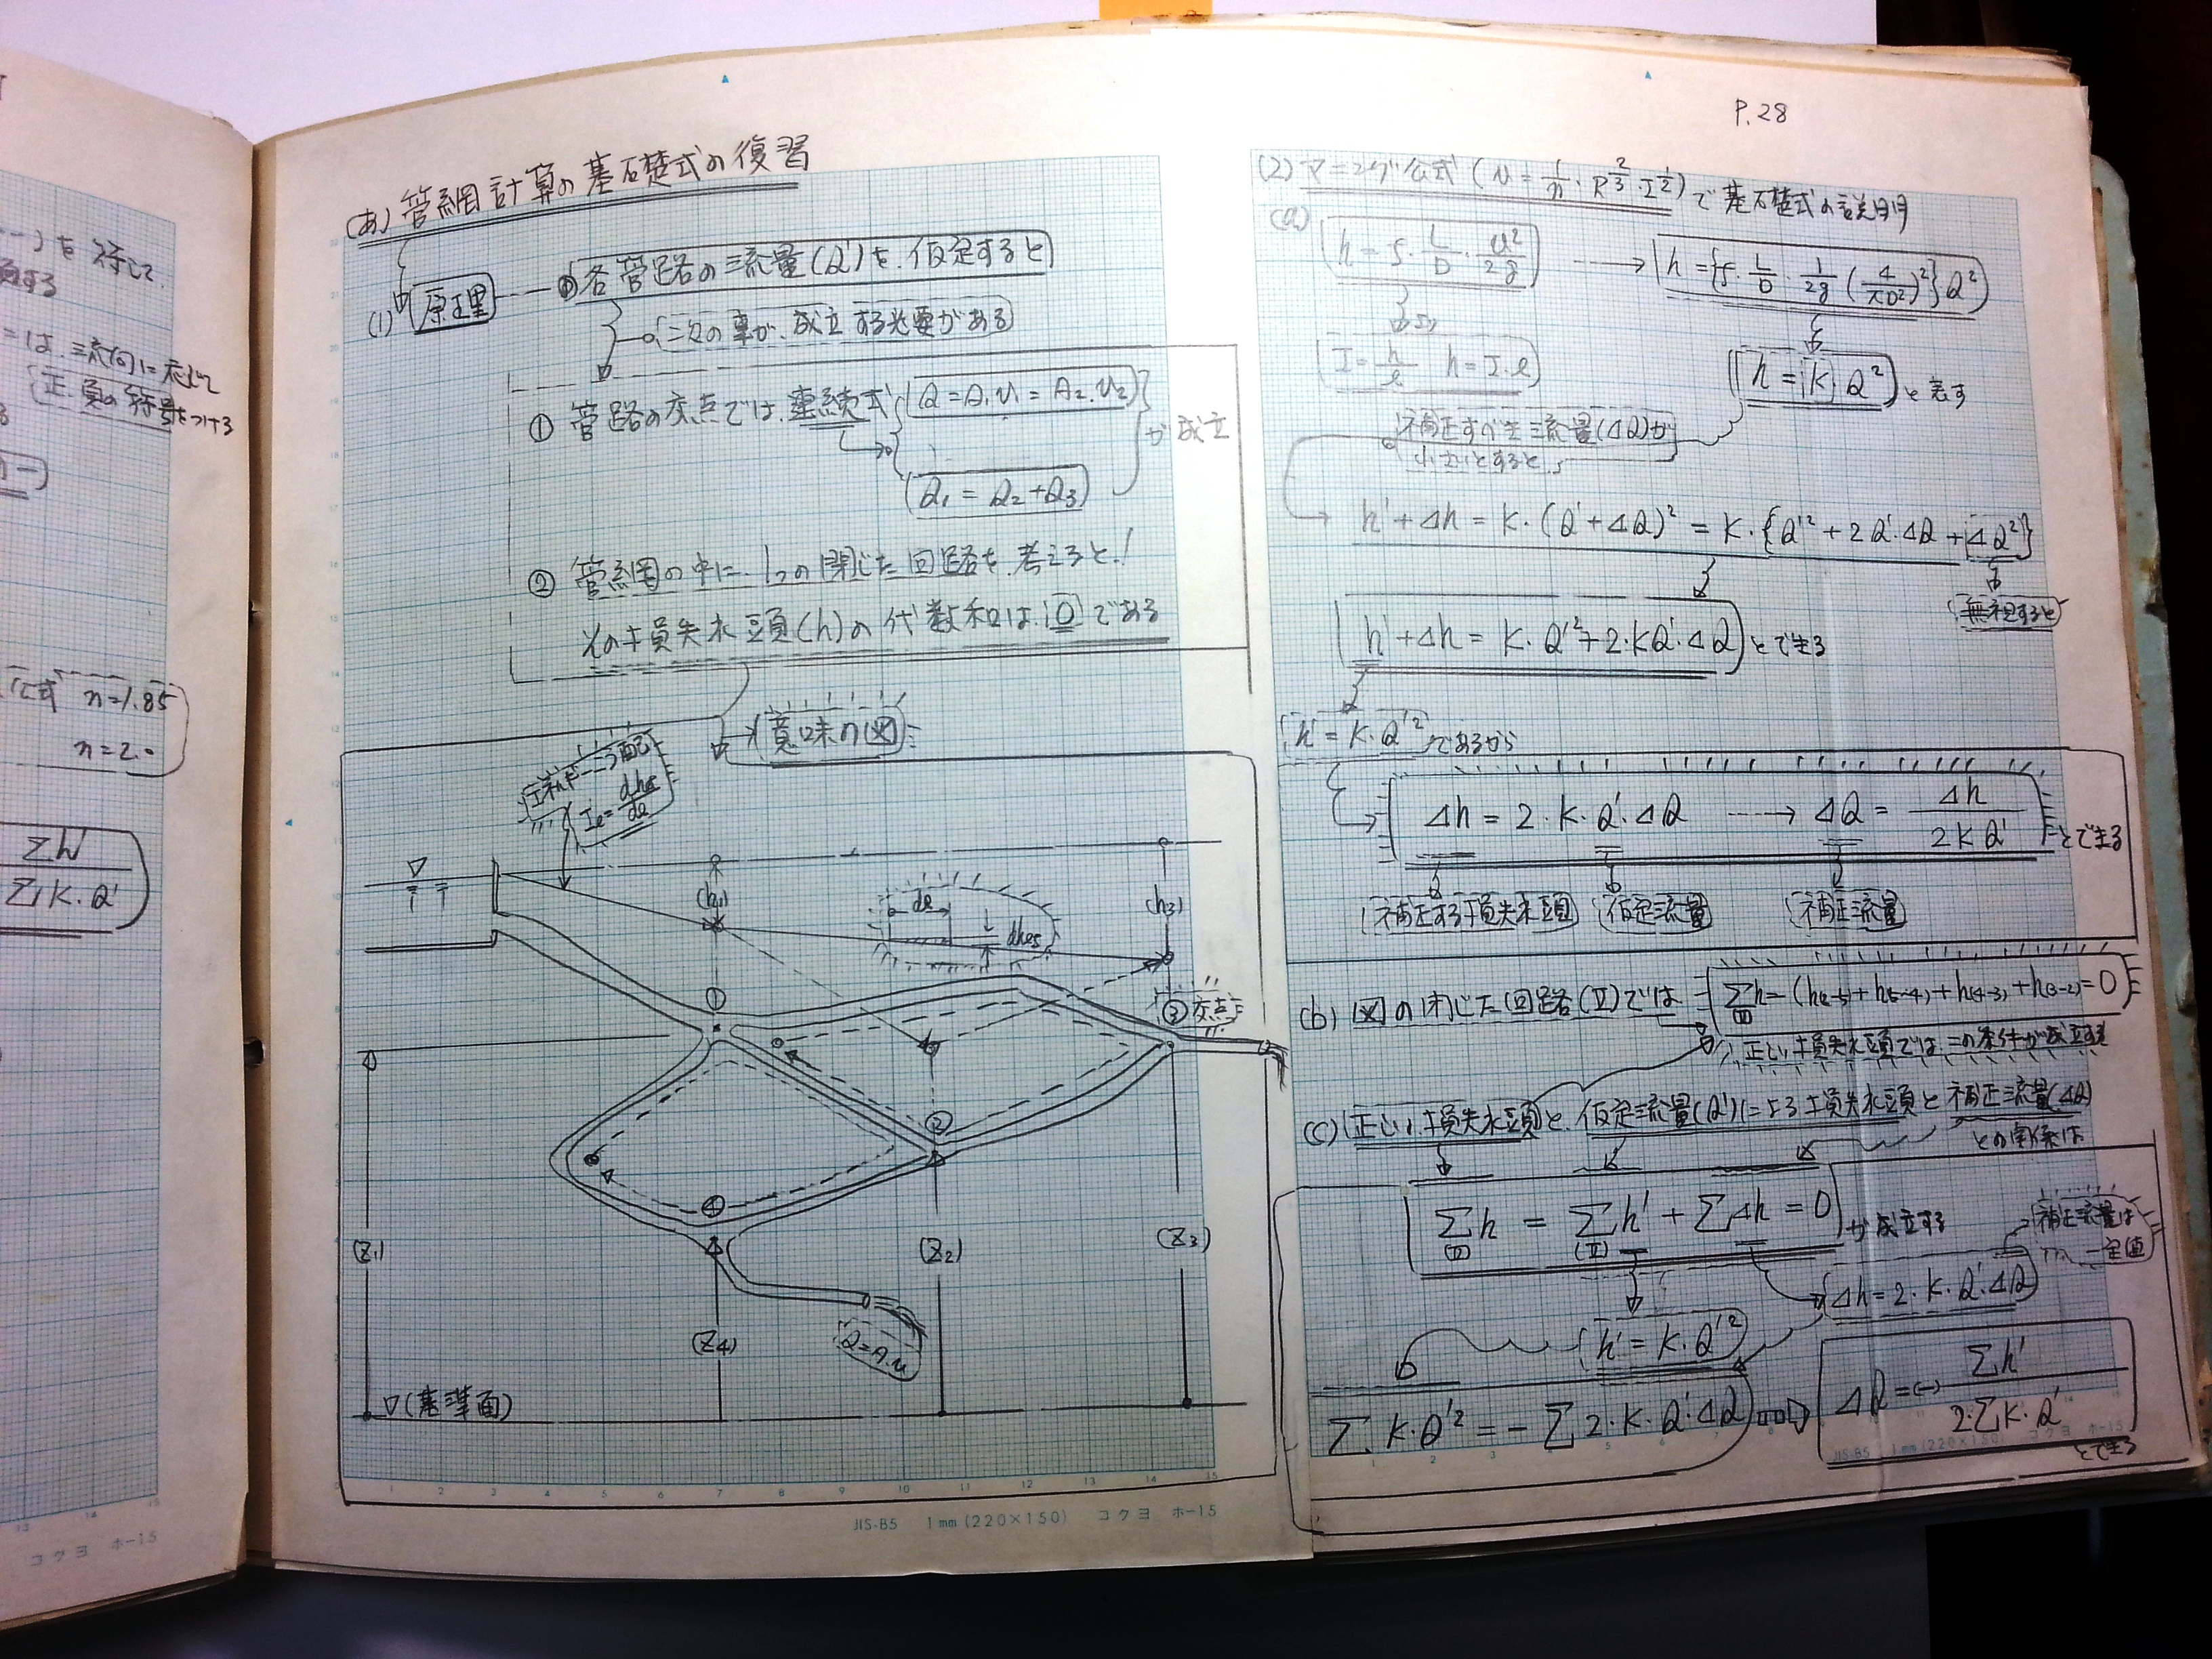 -)を符して
=は、流向に応じて
正、負の符号をつける
公式 n=1.85
n=2.0
Σh'
ΣK.Q'
コクヨ ホ-15
(あ)管網計算の基礎式の復習
(1) 原理 各管路の流量(Q')を、仮定すると
次の事が、成立する必要がある
① 管路の交点では、連続式 (Q=A₁v₁=A₂.v₂)
(Q₁=Q₂+Q₃)
が成立
② 管網の中に、1つの閉じた回路を、考えると!
その損失水頭(h)の代数和は、0である
意味の図
エネルギーコウ配
Ie=dhes/dl
(h₁)
dl
dhes
(h₃)
①
③交点
②
④
(Z₁)
(Z₂)
(Z₃)
(Z₄)
Q=A.v
▽(基準面)
1 2 3 4 5 6 7 8 9 10 11 12 13 14 15
JIS-B5 1mm(220×150) コクヨ ホ-15
P.28
(2) マニング公式(v=1/n・R^(2/3)・I^(1/2))で基礎式の説明
(a) h=f・L/D・v²/2g → h={f・L/D・1/2g(4/πD²)²}Q²
I=h/l h=I・l
h=(K)Q² と表す
補正すべき流量(ΔQ)が
小さいとすると、
h'+Δh=K・(Q'+ΔQ)²=K・{Q'²+2Q'・ΔQ+ΔQ²}
無視すると
h'+Δh=K・Q'²+2・KQ'・ΔQ とできる
h'=K・Q'² であるから
Δh=2・K・Q'・ΔQ → ΔQ=Δh/2KQ' とできる
補正する損失水頭 仮定流量 補正流量
(b) 図の閉じた回路(Ⅱ)では Σh=(h(2-5)+h(5-4)+h(4-3)+h(3-2))=0
正しい損失水頭では、この条件が成立する
(c)(正しい損失水頭)と、仮定流量(Q')による損失水頭と補正流量(ΔQ)
との関係は
Σh = Σh' + ΣΔh = 0 が成立する
(Ⅱ) (Ⅱ)
補正流量は
一定値
Δh=2・K・Q'・ΔQ
h'=K・Q'²
ΣK・Q'²=-Σ2・K・Q'・ΔQ ⇨ ΔQ=(-)Σh'/2・ΣK・Q'
とできる
JIS-B5 1mm(220×150) コクヨ ホ-15